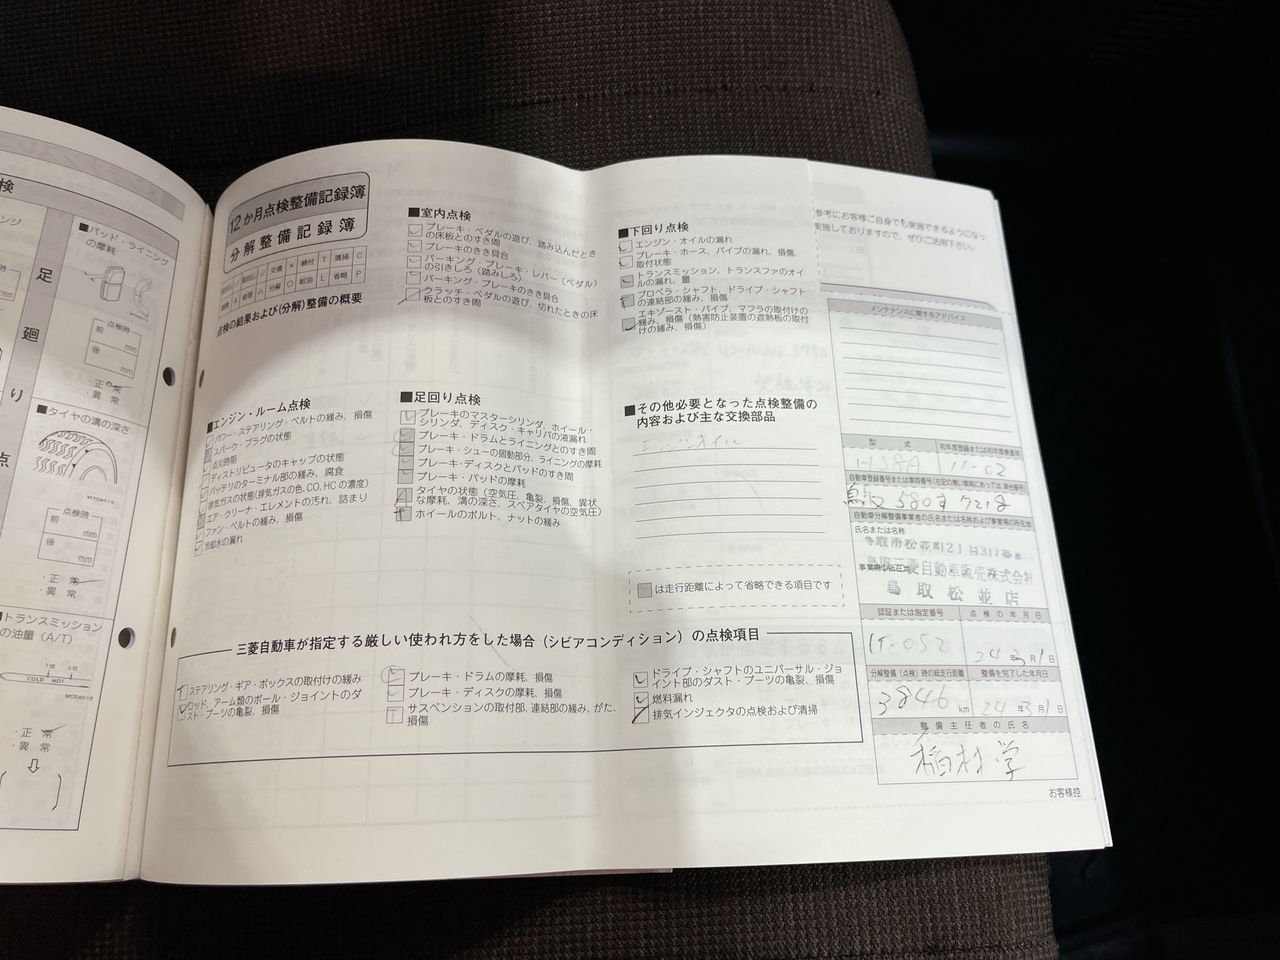 検
足
廻
り
点
■パッド・ライニング
の摩耗
点検時
前
mm
後
mm
・正 常
・異 常
■タイヤの溝の深さ
点検時
前
mm
後
mm
・正 常
・異 常
■トランスミッション
の油量 (A/T)
COLD HOT
・正 常
・異 常
12か月点検整備記録簿
分解整備記録簿
交換 × 締付 T 清掃 C
分解 ○ 給油 L 省略 P
点検の結果および(分解)整備の概要
■エンジン・ルーム点検
パワー・ステアリング・ベルトの緩み、損傷
スパーク・プラグの状態
点火時期
ディストリビュータのキャップの状態
バッテリのターミナル部の緩み、腐食
排気ガスの状態(排気ガスの色、CO、HCの濃度)
エア・クリーナ・エレメントの汚れ、詰まり
ファン・ベルトの緩み、損傷
冷却水の漏れ
■室内点検
ブレーキ・ペダルの遊び、踏み込んだとき
の床板とのすき間
ブレーキのきき具合
パーキング・ブレーキ・レバー(ペダル)
の引きしろ(踏みしろ)
パーキング・ブレーキのきき具合
クラッチ・ペダルの遊び、切れたときの床
板とのすき間
■足回り点検
ブレーキのマスターシリンダ、ホイール・
シリンダ、ディスク・キャリパの液漏れ
ブレーキ・ドラムとライニングとのすき間
ブレーキ・シューの摺動部分、ライニングの摩耗
ブレーキ・ディスクとパッドのすき間
ブレーキ・パッドの摩耗
タイヤの状態(空気圧、亀裂、損傷、異状
な摩耗、溝の深さ、スペアタイヤの空気圧)
ホイールのボルト、ナットの緩み
■下回り点検
エンジン・オイルの漏れ
ブレーキ・ホース、パイプの漏れ、損傷、
取付状態
トランスミッション、トランスファのオイ
ルの漏れ、量
プロペラ・シャフト、ドライブ・シャフト
の連結部の緩み、損傷
エキゾースト・パイプ、マフラの取付けの
緩み、損傷(熱害防止装置の遮熱板の取付
けの緩み、損傷)
■その他必要となった点検整備の
内容および主な交換部品
は走行距離によって省略できる項目です
三菱自動車が指定する厳しい使われ方をした場合(シビアコンディション)の点検項目
ステアリング・ギア・ボックスの取付けの緩み
ロッド、アーム類のボール・ジョイントのダ
スト・ブーツの亀裂、損傷
ブレーキ・ドラムの摩耗、損傷
ブレーキ・ディスクの摩耗、損傷
サスペンションの取付部、連結部の緩み、がた、
損傷
ドライブ・シャフトのユニバーサル・ジョ
イント部のダスト・ブーツの亀裂、損傷
燃料漏れ
排気インジェクタの点検および清掃
参考にお客様ご自身でも実施できるようになっ
実施しておりますので、ぜひご活用下さい。
メンテナンスに関するアドバイス
型 式
初年度登録または初年度検査年
H58A
11-02
自動車登録番号または車両番号
鳥取 580 す 7218
自動車分解整備事業者の氏名または名称および事業場の所在地
氏名または名称
事業場の所在地
鳥取三菱自動車販売株式会社
鳥取松並店
認証または指定番号
点検の年月日
1T-052
24年3月1日
分解整備(点検)時の総走行距離
整備を完了した年月日
3846 km
24年3月1日
整備主任者の氏名
稲村学
お客様控